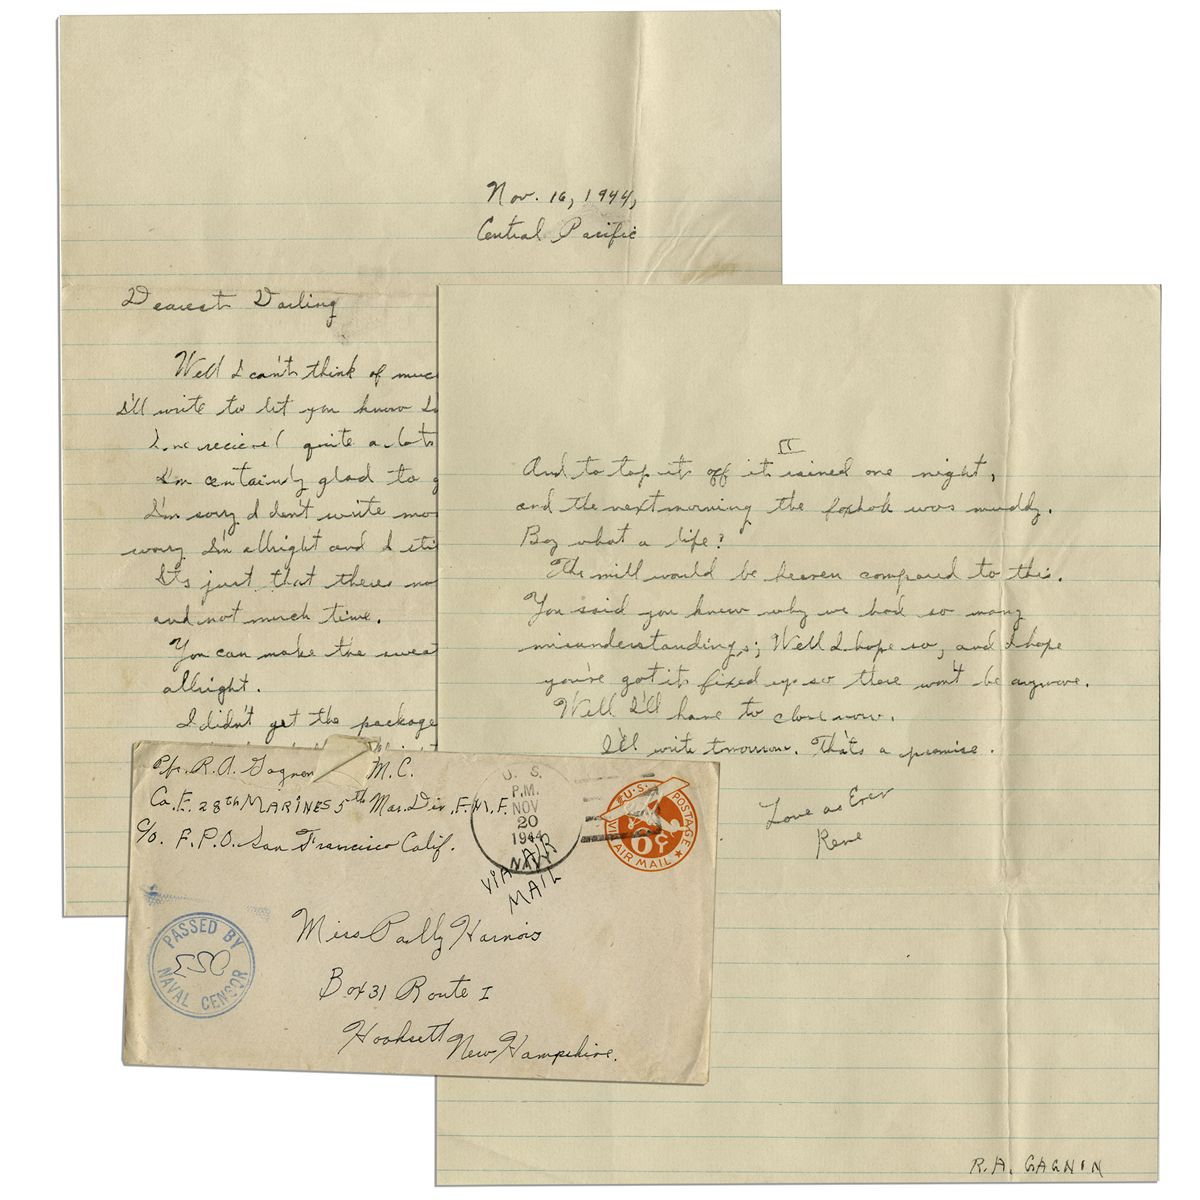 Nov. 16, 1944,
Central Pacific
Dearest Darling
Well I can't think of muc
I'll write to let you know I
quite a lots
I'm centainly glad to g
I'm sorry I don't write mo
worry I'm allright and I sti
Its just that theres no
and not much time.
You can make the sweat
allright.
I didn't get the package
II
And to top it off it rained one night,
and the next morning the foxhole was muddy.
Boy what a life?
The mill would be heaven compared to this.
You said you knew why we had so many
misunderstandings; Well I hope so, and I hope
you've got it fixed up so there won't be anymore.
Well I'll have to close now.
I'll write tmorrow. That's a promise.
Love as Ever
Rene
R. A. GAGNON
Pfc. R. A. Gagnon M.C.
Co. E. 28TH MARINES 5th Mar. Div. F.M.F.
C/o. F.P.O. San Francisco Calif.
U. S.
P.M.
NOV
20
1944
NAVY
VIA AIR
MAIL
U.S. POSTAGE
6¢
VIA AIR MAIL
PASSED BY
NAVAL CENSOR
Miss Pally Harnois
Box 31 Route I
Hooksett
New Hampshire.